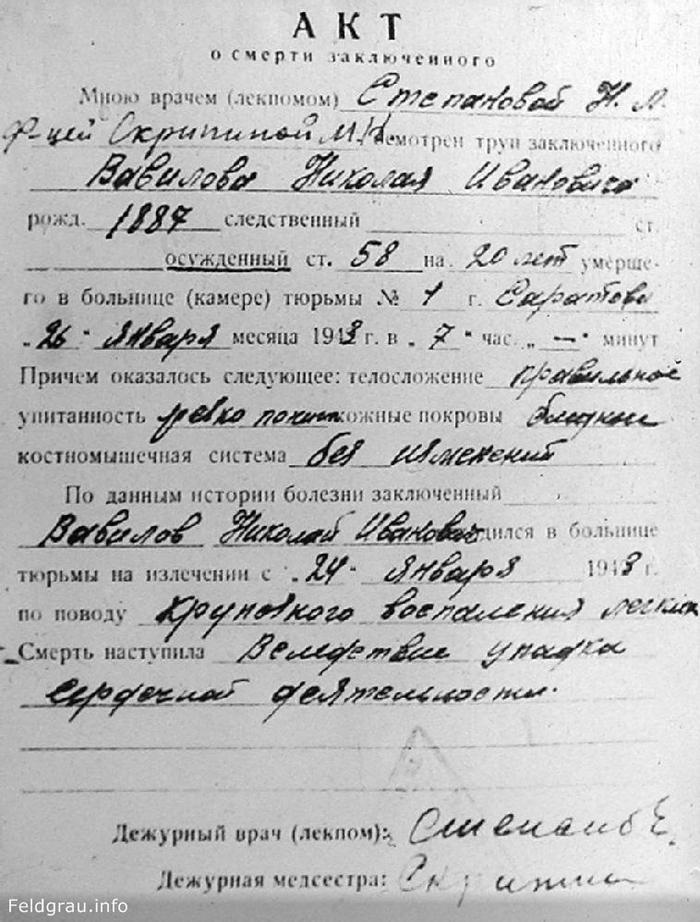 АКТ
о смерти заключенного
Мною врачем (лекпомом) Степановой Н. Л.
Ф-цей Скрипиной М.Н. осмотрен труп заключенного
Вавилова Николая Ивановича
рожд. 1887 следственный ст.
осужденный ст. 58 на 20 лет умерше-
го в больнице (камере) тюрьмы № 1 г. Саратова
„26" января месяца 1943 г. в „7" час. „—" минут
Причем оказалось следующее: телосложение правильное
упитанность резко пониж кожные покровы бледные
костномышечная система без изменений
По данным истории болезни заключенный
Вавилов Николай Иванович
дился в больнице
тюрьмы на излечении с „24" января 1943 г.
по поводу крупозного воспаления легких
Смерть наступила Вследствие упадка
сердечной деятельности.
Дежурный врач (лекпом): Степанова
Дежурная медсестра: Скрипина
Feldgrau.info